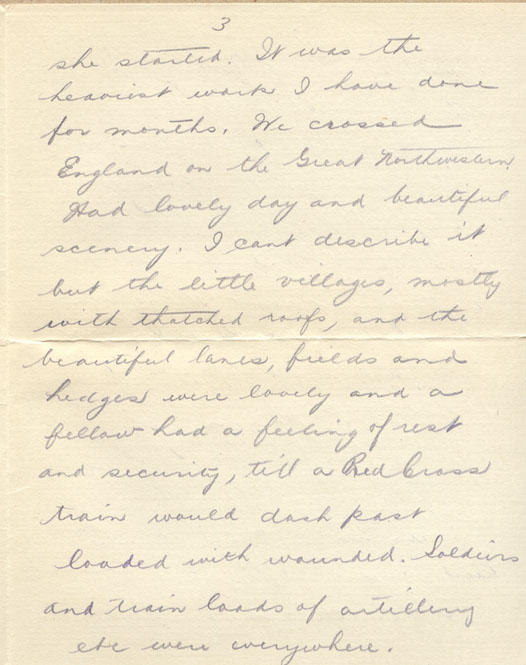 3
she started. It was the
heaviest work I have done
for months. We crossed
England on the Great Northwestern.
Had lovely day and beautiful
scenery. I cant describe it
but the little villages, mostly
with thatched roofs, and the
beautiful lanes, fields and
hedges were lovely and a
fellow had a feeling of rest
and security, till a Red Cross
train would dash past
loaded with wounded. Soldiers
and train loads of artillery
etc were everywhere.